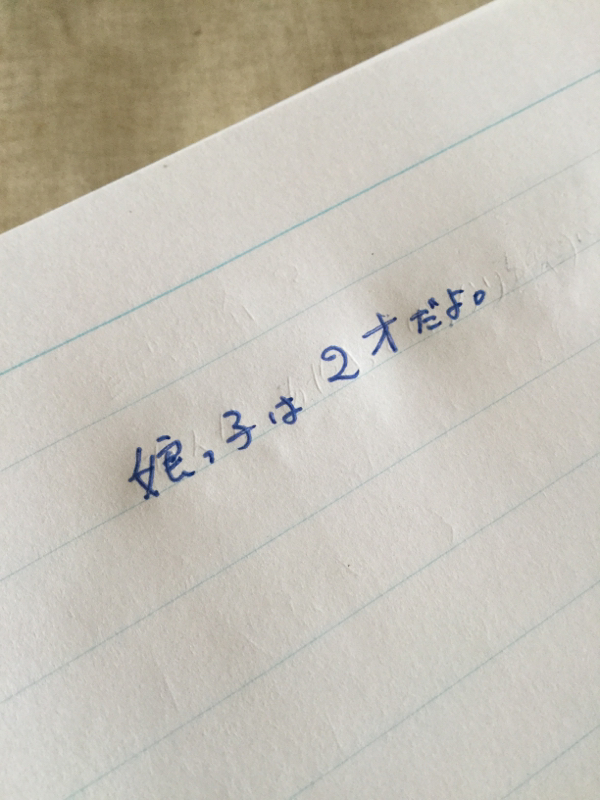 娘っ子は2才だよ。